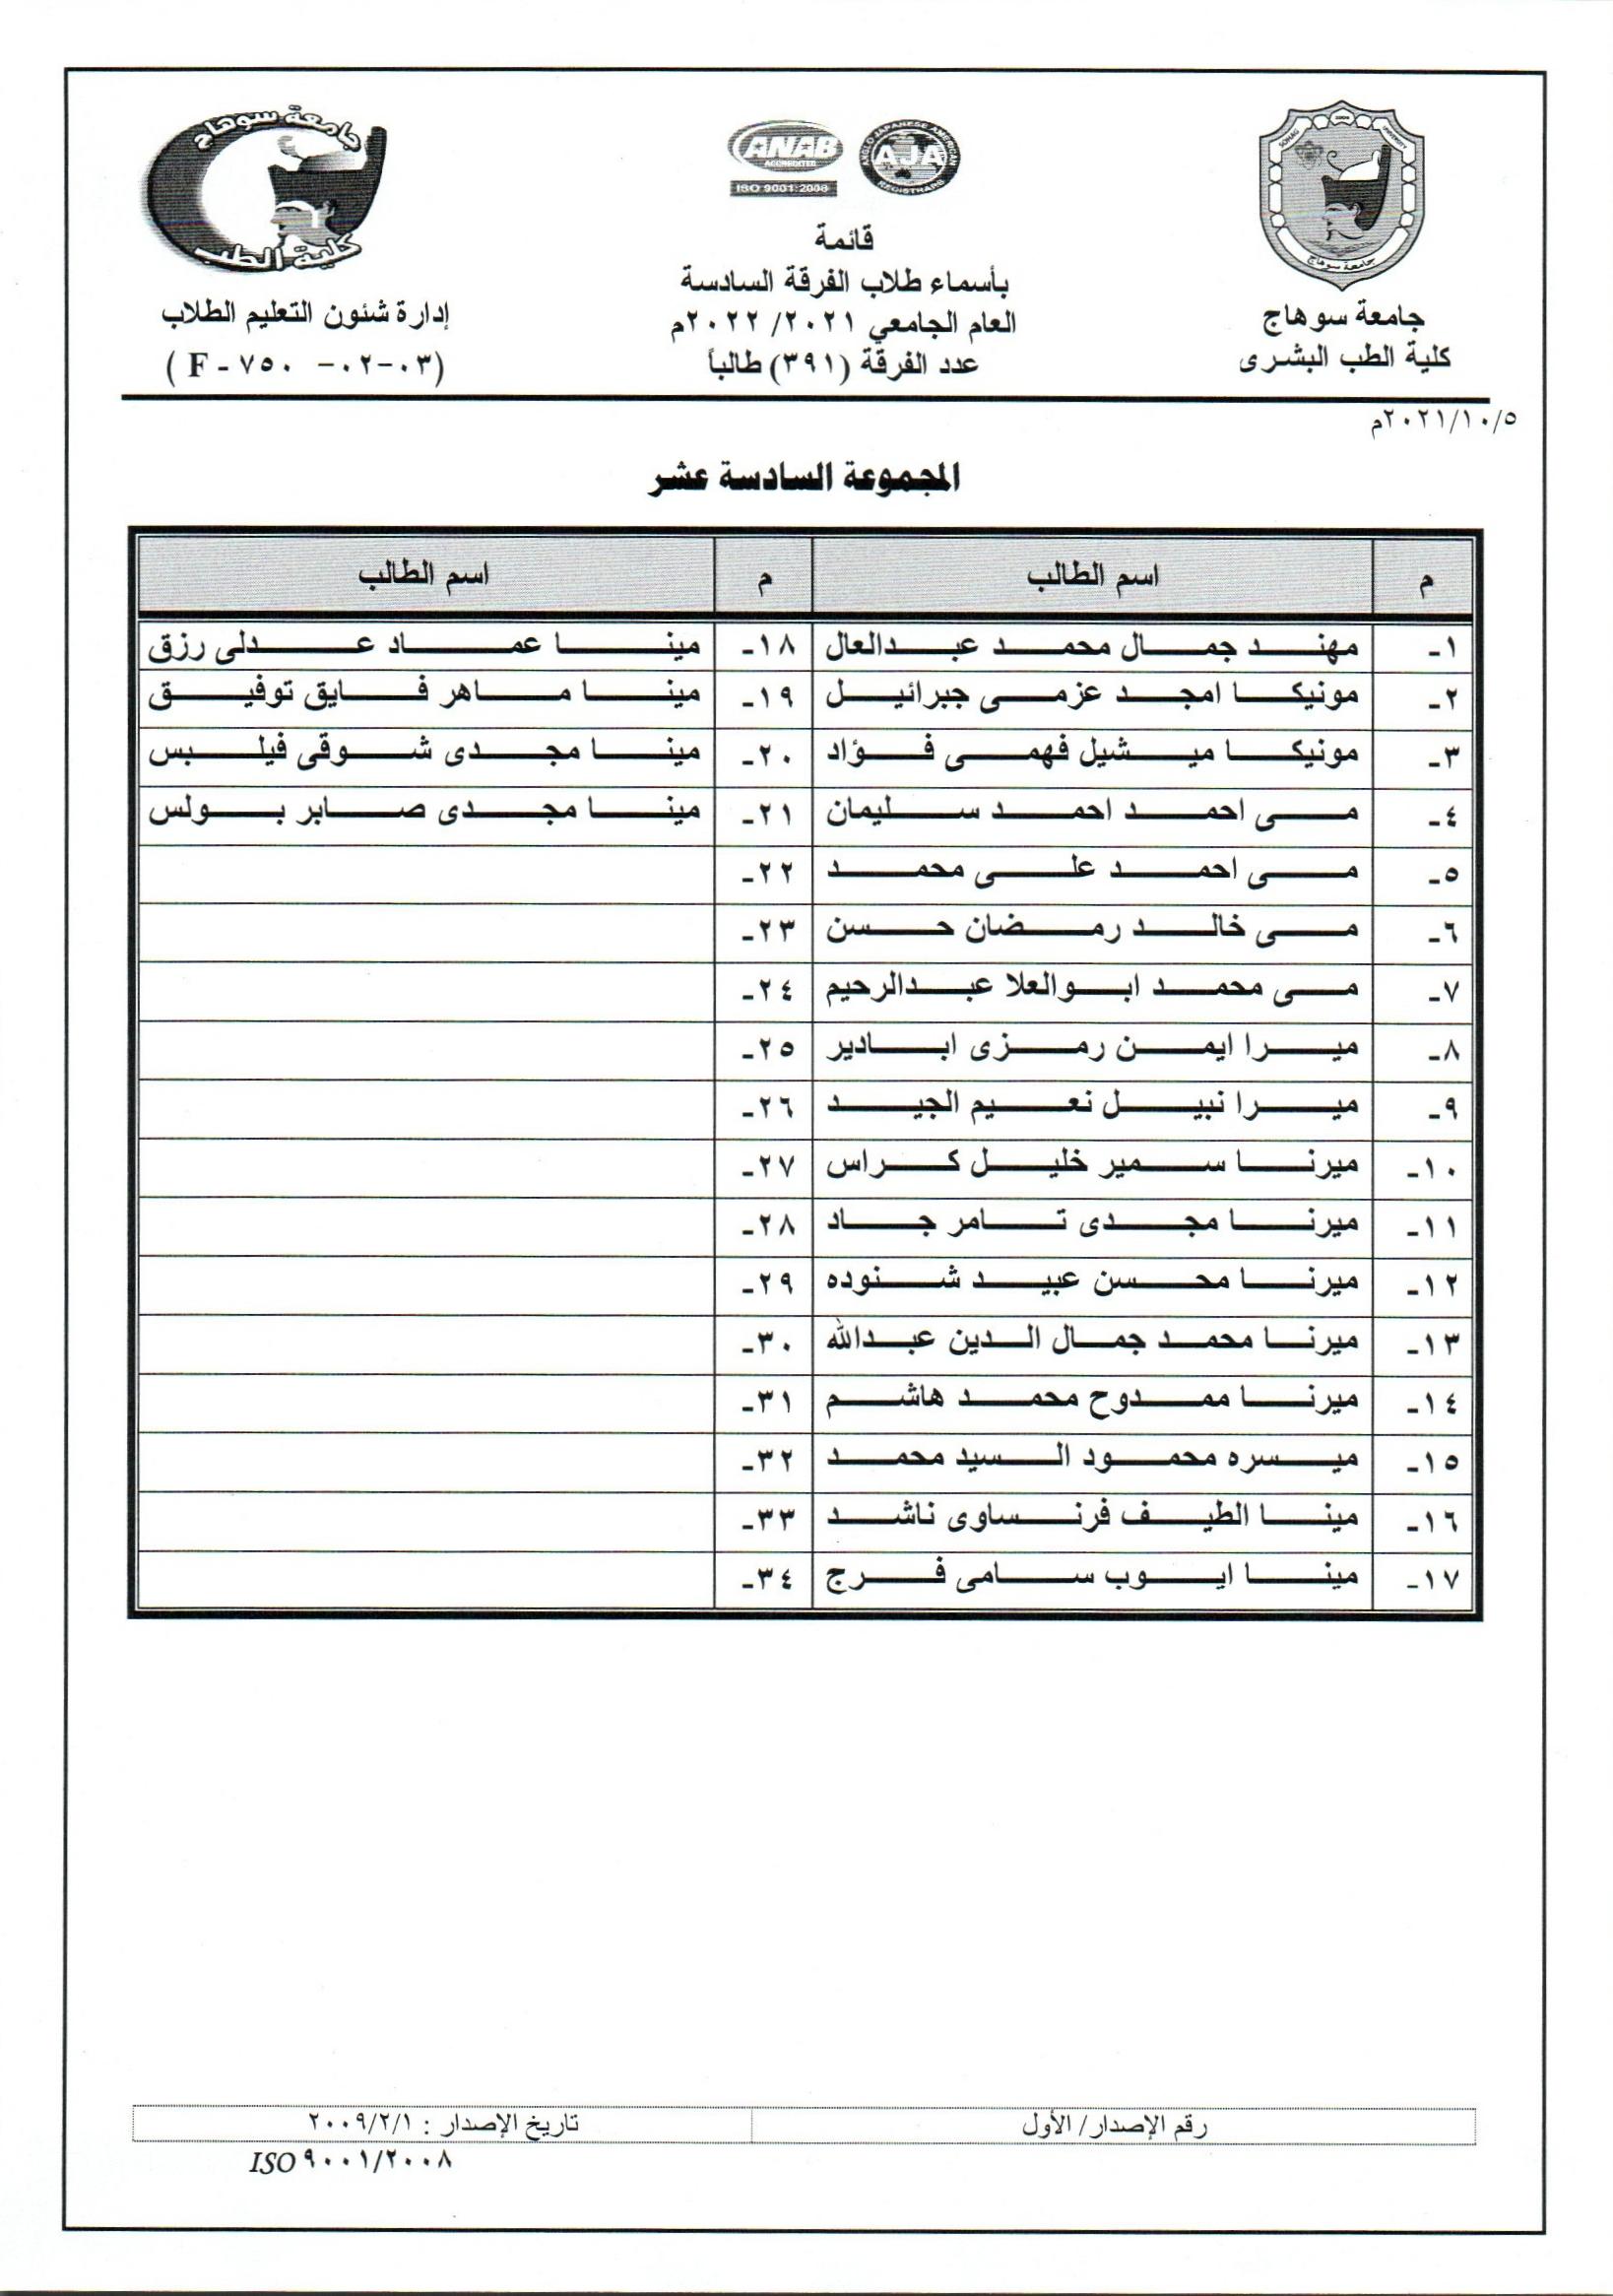 جامعة سوهاج
كلية الطب
ANAB
ACCREDITED
ISO 9001:2008
ANGLO JAPANESE AMERICAN
AJA
REGISTRARS
SOHAG UNIVERSITY
جامعة سوهاج
جامعة سوهاج
كلية الطب البشرى
قائمة
بأسماء طلاب الفرقة السادسة
العام الجامعي ٢٠٢١/ ٢٠٢٢م
عدد الفرقة (٣٩١) طالباً
إدارة شئون التعليم الطلاب
(F - ٧٥٠ -٠٢-٠٣)
٢٠٢١/١٠/٥م
المجموعة السادسة عشر
م اسم الطالب م اسم الطالب
١- مهند جمال محمد عبدالعال ١٨- مينا عماد عدلى رزق
٢- مونيكا امجد عزمى جبرائيل ١٩- مينا ماهر فايق توفيق
٣- مونيكا ميشيل فهمى فؤاد ٢٠- مينا مجدى شوقى فيلبس
٤- مى احمد احمد سليمان ٢١- مينا مجدى صابر بولس
٥- مى احمد على محمد ٢٢-
٦- مى خالد رمضان حسن ٢٣-
٧- مى محمد ابوالعلا عبدالرحيم ٢٤-
٨- ميرا ايمن رمزى ابادير ٢٥-
٩- ميرا نبيل نعيم الجيد ٢٦-
١٠- ميرنا سمير خليل كراس ٢٧-
١١- ميرنا مجدى تامر جاد ٢٨-
١٢- ميرنا محسن عبيد شنوده ٢٩-
١٣- ميرنا محمد جمال الدين عبدالله ٣٠-
١٤- ميرنا ممدوح محمد هاشم ٣١-
١٥- ميسره محمود السيد محمد ٣٢-
١٦- مينا الطيف فرنساوى ناشد ٣٣-
١٧- مينا ايوب سامى فرج ٣٤-
رقم الإصدار/ الأول تاريخ الإصدار : ٢٠٠٩/٢/١
ISO ٩٠٠١/٢٠٠٨